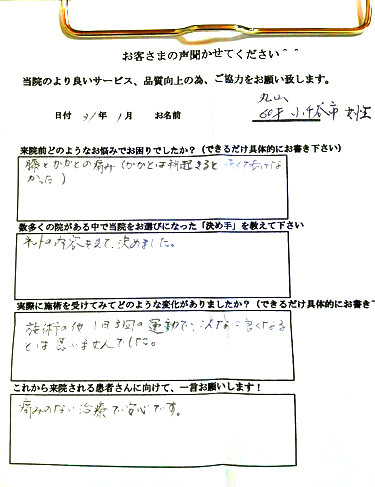 お客さまの声聞かせてください^^
当院のより良いサービス、品質向上の為、ご協力をお願い致します。
日付 31年 1月 お名前
丸山
60才 小千谷市 女性
来院前どのようなお悩みでお困りでしたか？(できるだけ具体的にお書き下さい)
膝とかかとの痛み(かかとは朝起きると痛くて歩けな
かった)
数多くの院がある中で当院をお選びになった「決め手」を教えて下さい
ネットの内容を見て、決めました。
実際に施術を受けてみてどのような変化がありましたか？(できるだけ具体的にお書き
施術の他 1日3回の運動で、こんなに良くなる
とは思いませんでした。
これから来院される患者さんに向けて、一言お願いします！
痛みのない治療で安心です。